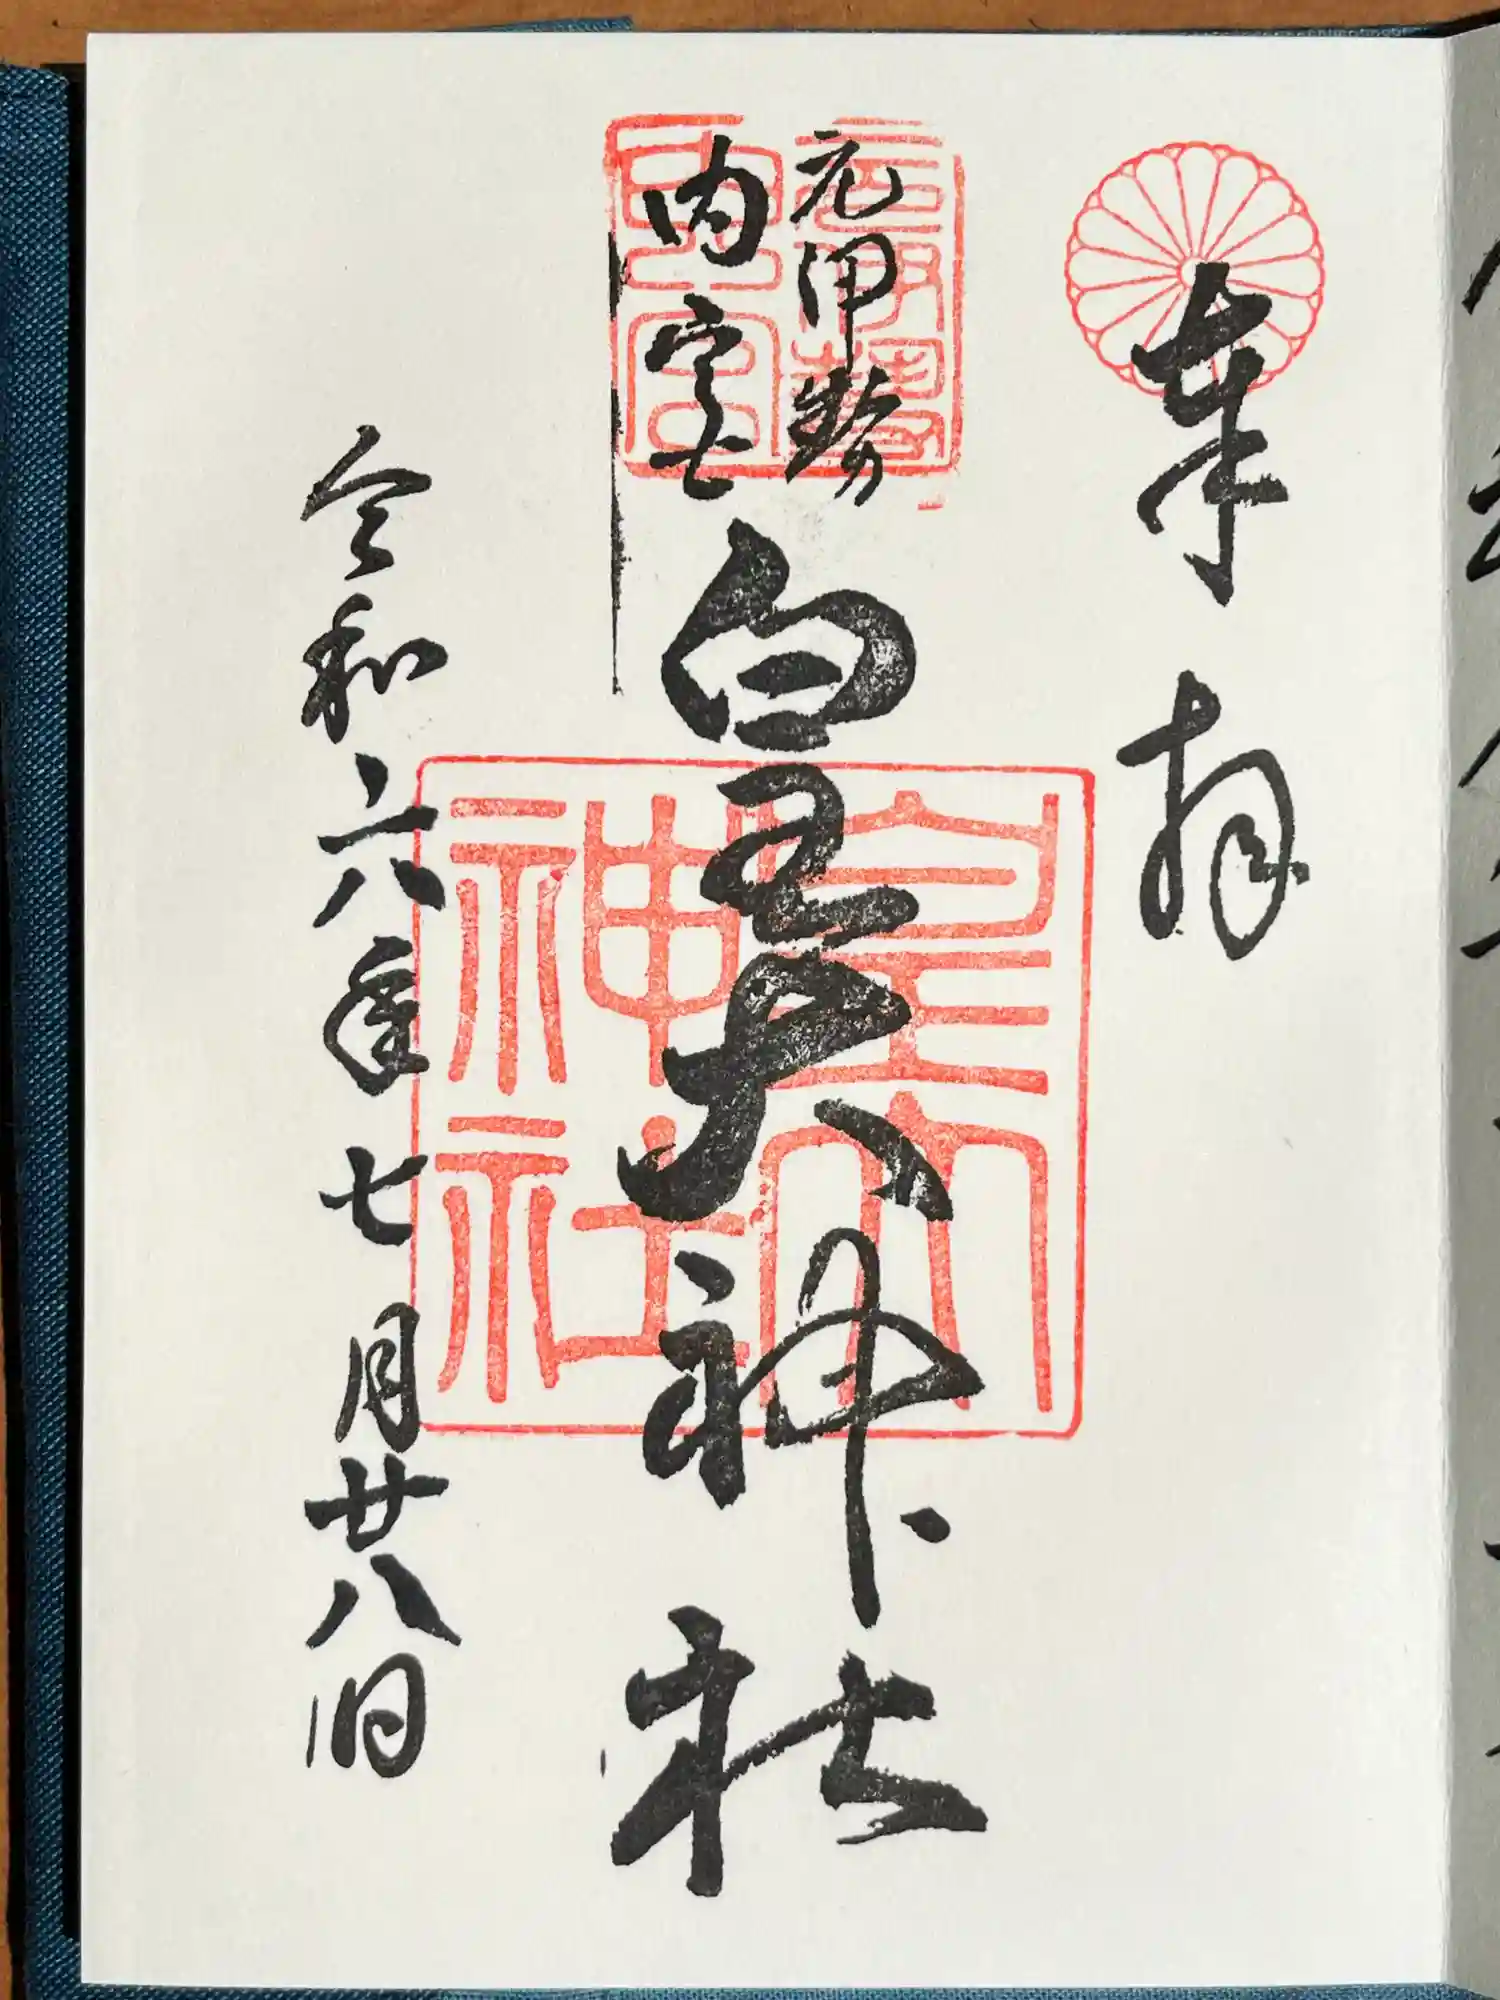 奉拝
元伊勢
内宮
皇大神社
令和六年七月廿八日
元伊勢
内宮
皇大
神社